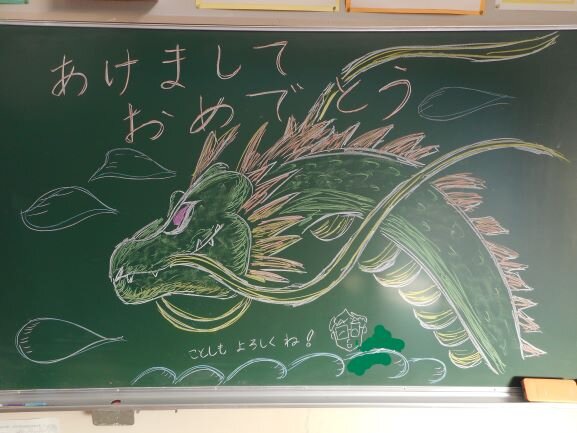 あけまして
おめでとう
ことしも よろしくね!